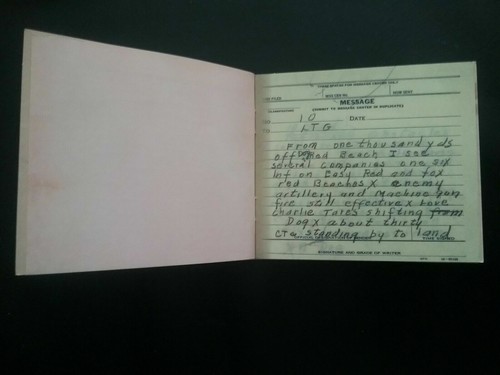 MESSAGE
(SUBMIT TO MESSAGE CENTER IN DUPLICATE)
10 DATE
LTG
From one thousand yds
off Red Beach I see
several companies one six
Inf on Easy Red and Fox
red Beaches X enemy
artillery and Machine gun
fire still effective X have
Charlie Tares shifting from
Dog X about thirty
standing by to land
SIGNATURE AND GRADE OF WRITER